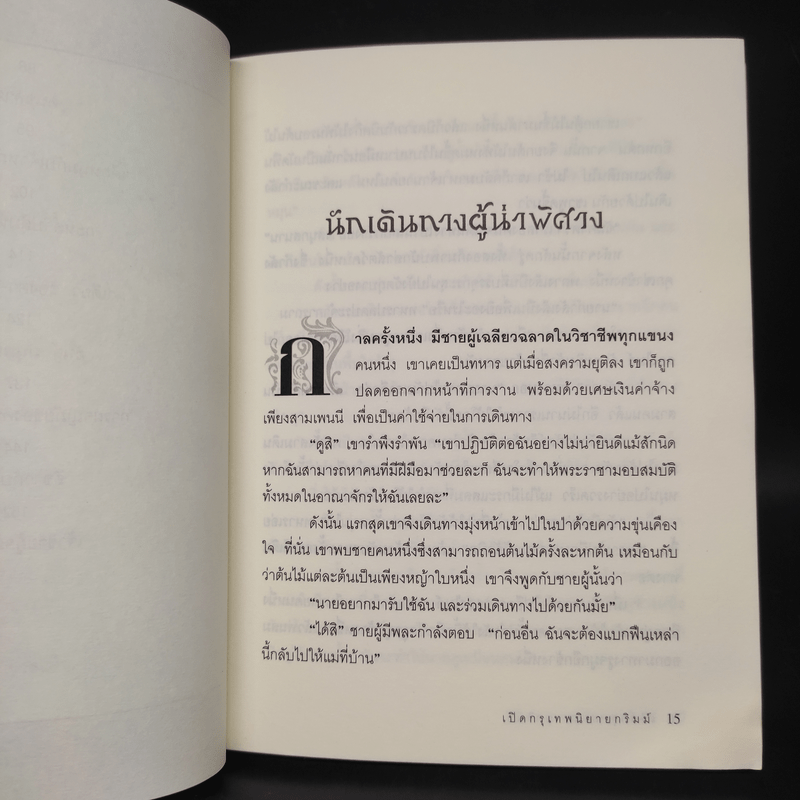 นักเดินทางผู้น่าพิศวง
กาลครั้งหนึ่ง มีชายผู้เฉลียวฉลาดในวิชาชีพทุกแขนง
คนหนึ่ง เขาเคยเป็นทหาร แต่เมื่อสงครามยุติลง เขาก็ถูก
ปลดออกจากหน้าที่การงาน พร้อมด้วยเศษเงินค่าจ้าง
เพียงสามเพนนี เพื่อเป็นค่าใช้จ่ายในการเดินทาง
“ดูสิ” เขารำพึงรำพัน “เขาปฏิบัติต่อฉันอย่างไม่น่ายินดีแม้สักนิด
หากฉันสามารถหาคนที่มีฝีมือมาช่วยละก็ ฉันจะทำให้พระราชามอบสมบัติ
ทั้งหมดในอาณาจักรให้ฉันเลยละ”
ดังนั้น แรกสุดเขาจึงเดินทางมุ่งหน้าเข้าไปในป่าด้วยความขุ่นเคือง
ใจ ที่นั่น เขาพบชายคนหนึ่งซึ่งสามารถถอนต้นไม้ครั้งละหกต้น เหมือนกับ
ว่าต้นไม้แต่ละต้นเป็นเพียงหญ้าใบหนึ่ง เขาจึงพูดกับชายผู้นั้นว่า
“นายอยากมารับใช้ฉัน และร่วมเดินทางไปด้วยกันมั้ย”
“ได้สิ” ชายผู้มีพละกำลังตอบ “ก่อนอื่น ฉันจะต้องแบกฟืนเหล่า
นี้กลับไปให้แม่ที่บ้าน”
เปิดกรุเทพนิยายกริมม์ 15